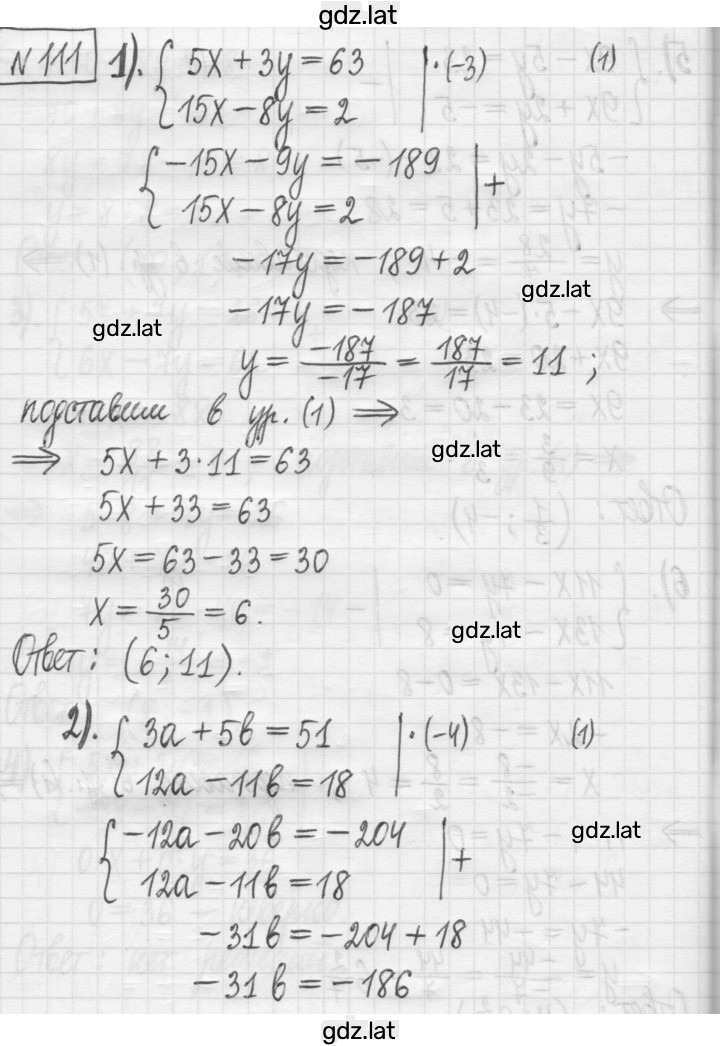 gdz.lat
N 111 1). { 5x + 3y = 63 | · (-3) (1)
15x - 8y = 2
{ -15x - 9y = -189 | +
15x - 8y = 2
-17y = -189 + 2
gdz.lat
-17y = -187
gdz.lat
y = -187/-17 = 187/17 = 11 ;
подставим в ур. (1) ⇒
gdz.lat
⇒ 5x + 3·11 = 63
5x + 33 = 63
5x = 63 - 33 = 30
x = 30/5 = 6.
gdz.lat
Ответ: (6; 11).
2). { 3a + 5b = 51 | · (-4) (1)
12a - 11b = 18
{ -12a - 20b = -204 | +
gdz.lat
12a - 11b = 18
-31b = -204 + 18
-31b = -186
gdz.lat